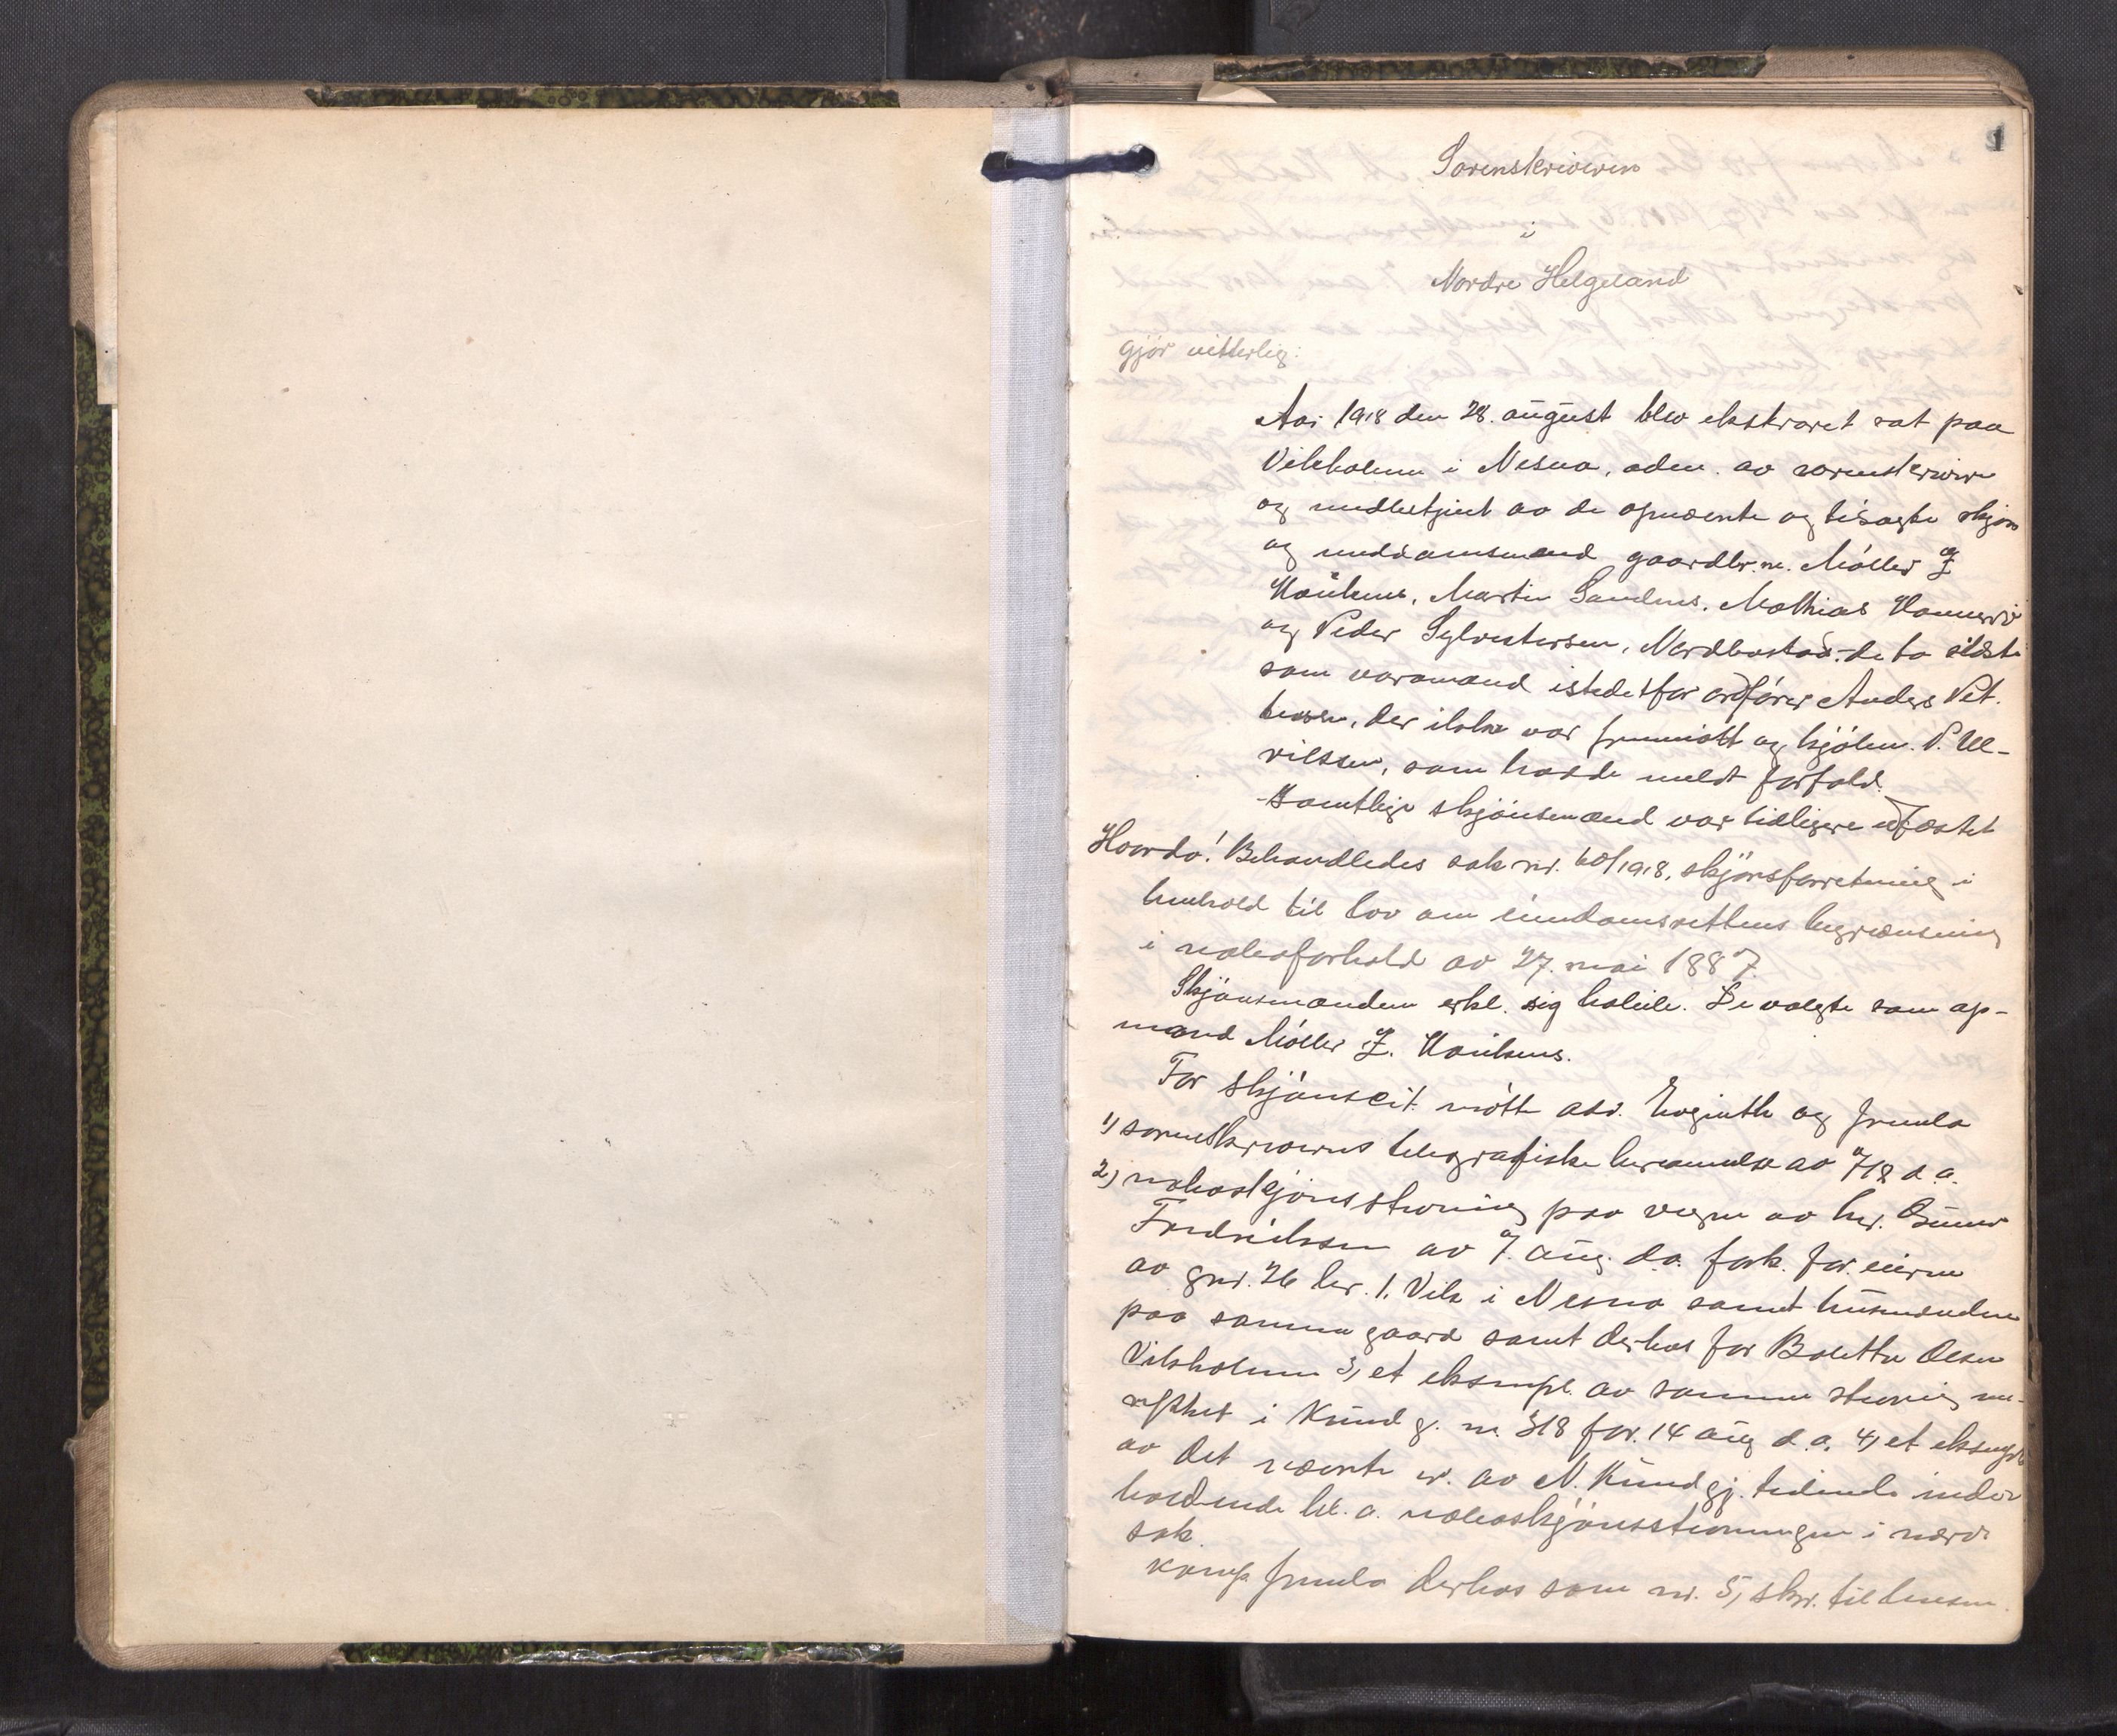 1
Sorenskriveren
i
Nordre Helgeland
gjør vitterlig:
Aar 1918 den 28. august blev ekstraret sat paa
Vikholmen i Nesna, adm. av sorenskriveren
og medbetjent av de opnævnte og tilsagte skjøns
og meddomsmænd gaardbr.ne. Møller Z
Martin Sandnes, Mathias
og Peder Sylvestersen, Nordbostad - de to sidste
som varamænd istedetfor ordfører Anders Pet.
tersen, der ikke var fremmøtt og kjøbm. P. Ul-
riksen, som hadde meldt forfald.
Samtlige skjønsmænd var tidligere edfæstet
Hvorda! Behandledes sak nr. 60/1918, skjønsforretning i
henhold til lov om eiendomsrettens begrænsning
i naboforhold av 27. mai 1887.
Skjønsmændene erkl. sig habile. De valgte som op-
mand Møller Z.
For skjønscit. møtte asf. og fremla
1) sorenskriverens telegrafiske berammelse av 7/8 d.a.
2) naboskjønsstevning paa vegne av hr. Gunnar
Fredriksen av 7. aug. d.a. fork. for eierne
av gnr. 26 br. 1. Vik i Nesna samt husmændene
paa samme gaard samt derhos for Bolette Olsen
Vikholmen 3) et eksmpl. av samme stevning
i Kundg. nr. 318 for 14 aug d.a. 4) et eksmpl.
av det nævnte nr. av N. Kundgj. tidende inde
holdende bl. a. naboskjønsstevningen i nærv.
sak.
Komp. fremla derhos som nr. 5) skr. til